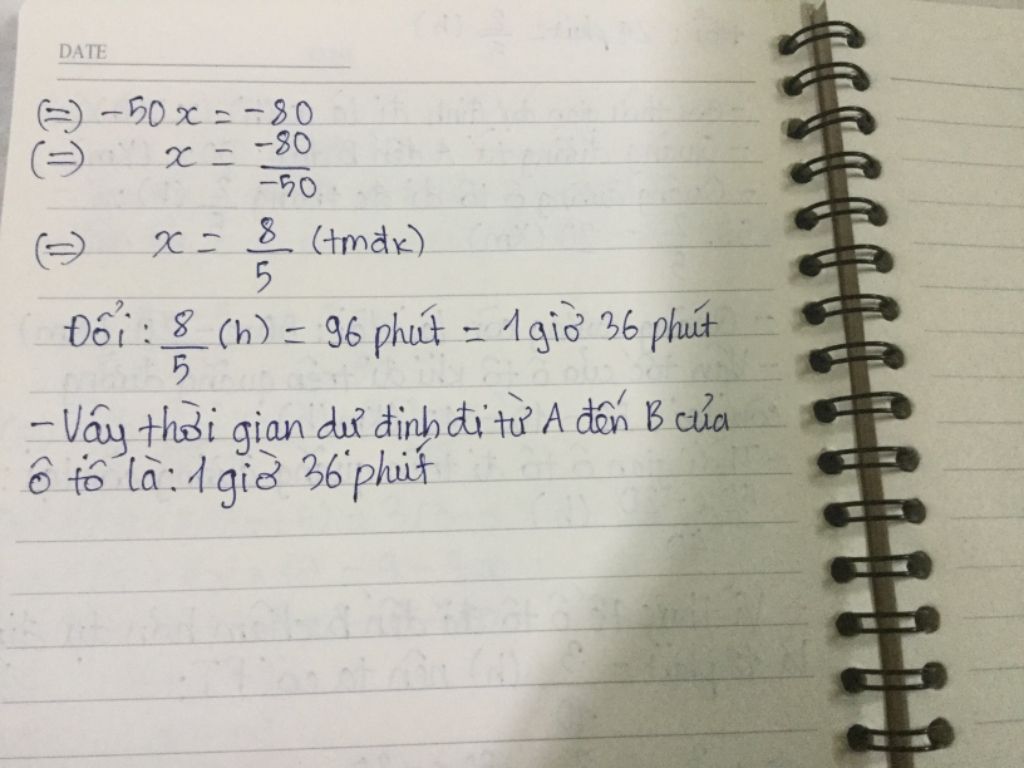 DATE
(=) -50x = -80
(=) x = -80/-50
(=) x = 8/5 (tmđk)
Đổi: 8/5 (h) = 96 phút = 1 giờ 36 phút
- Vậy thời gian dự định đi từ A đến B của
ô tô là: 1 giờ 36 phút